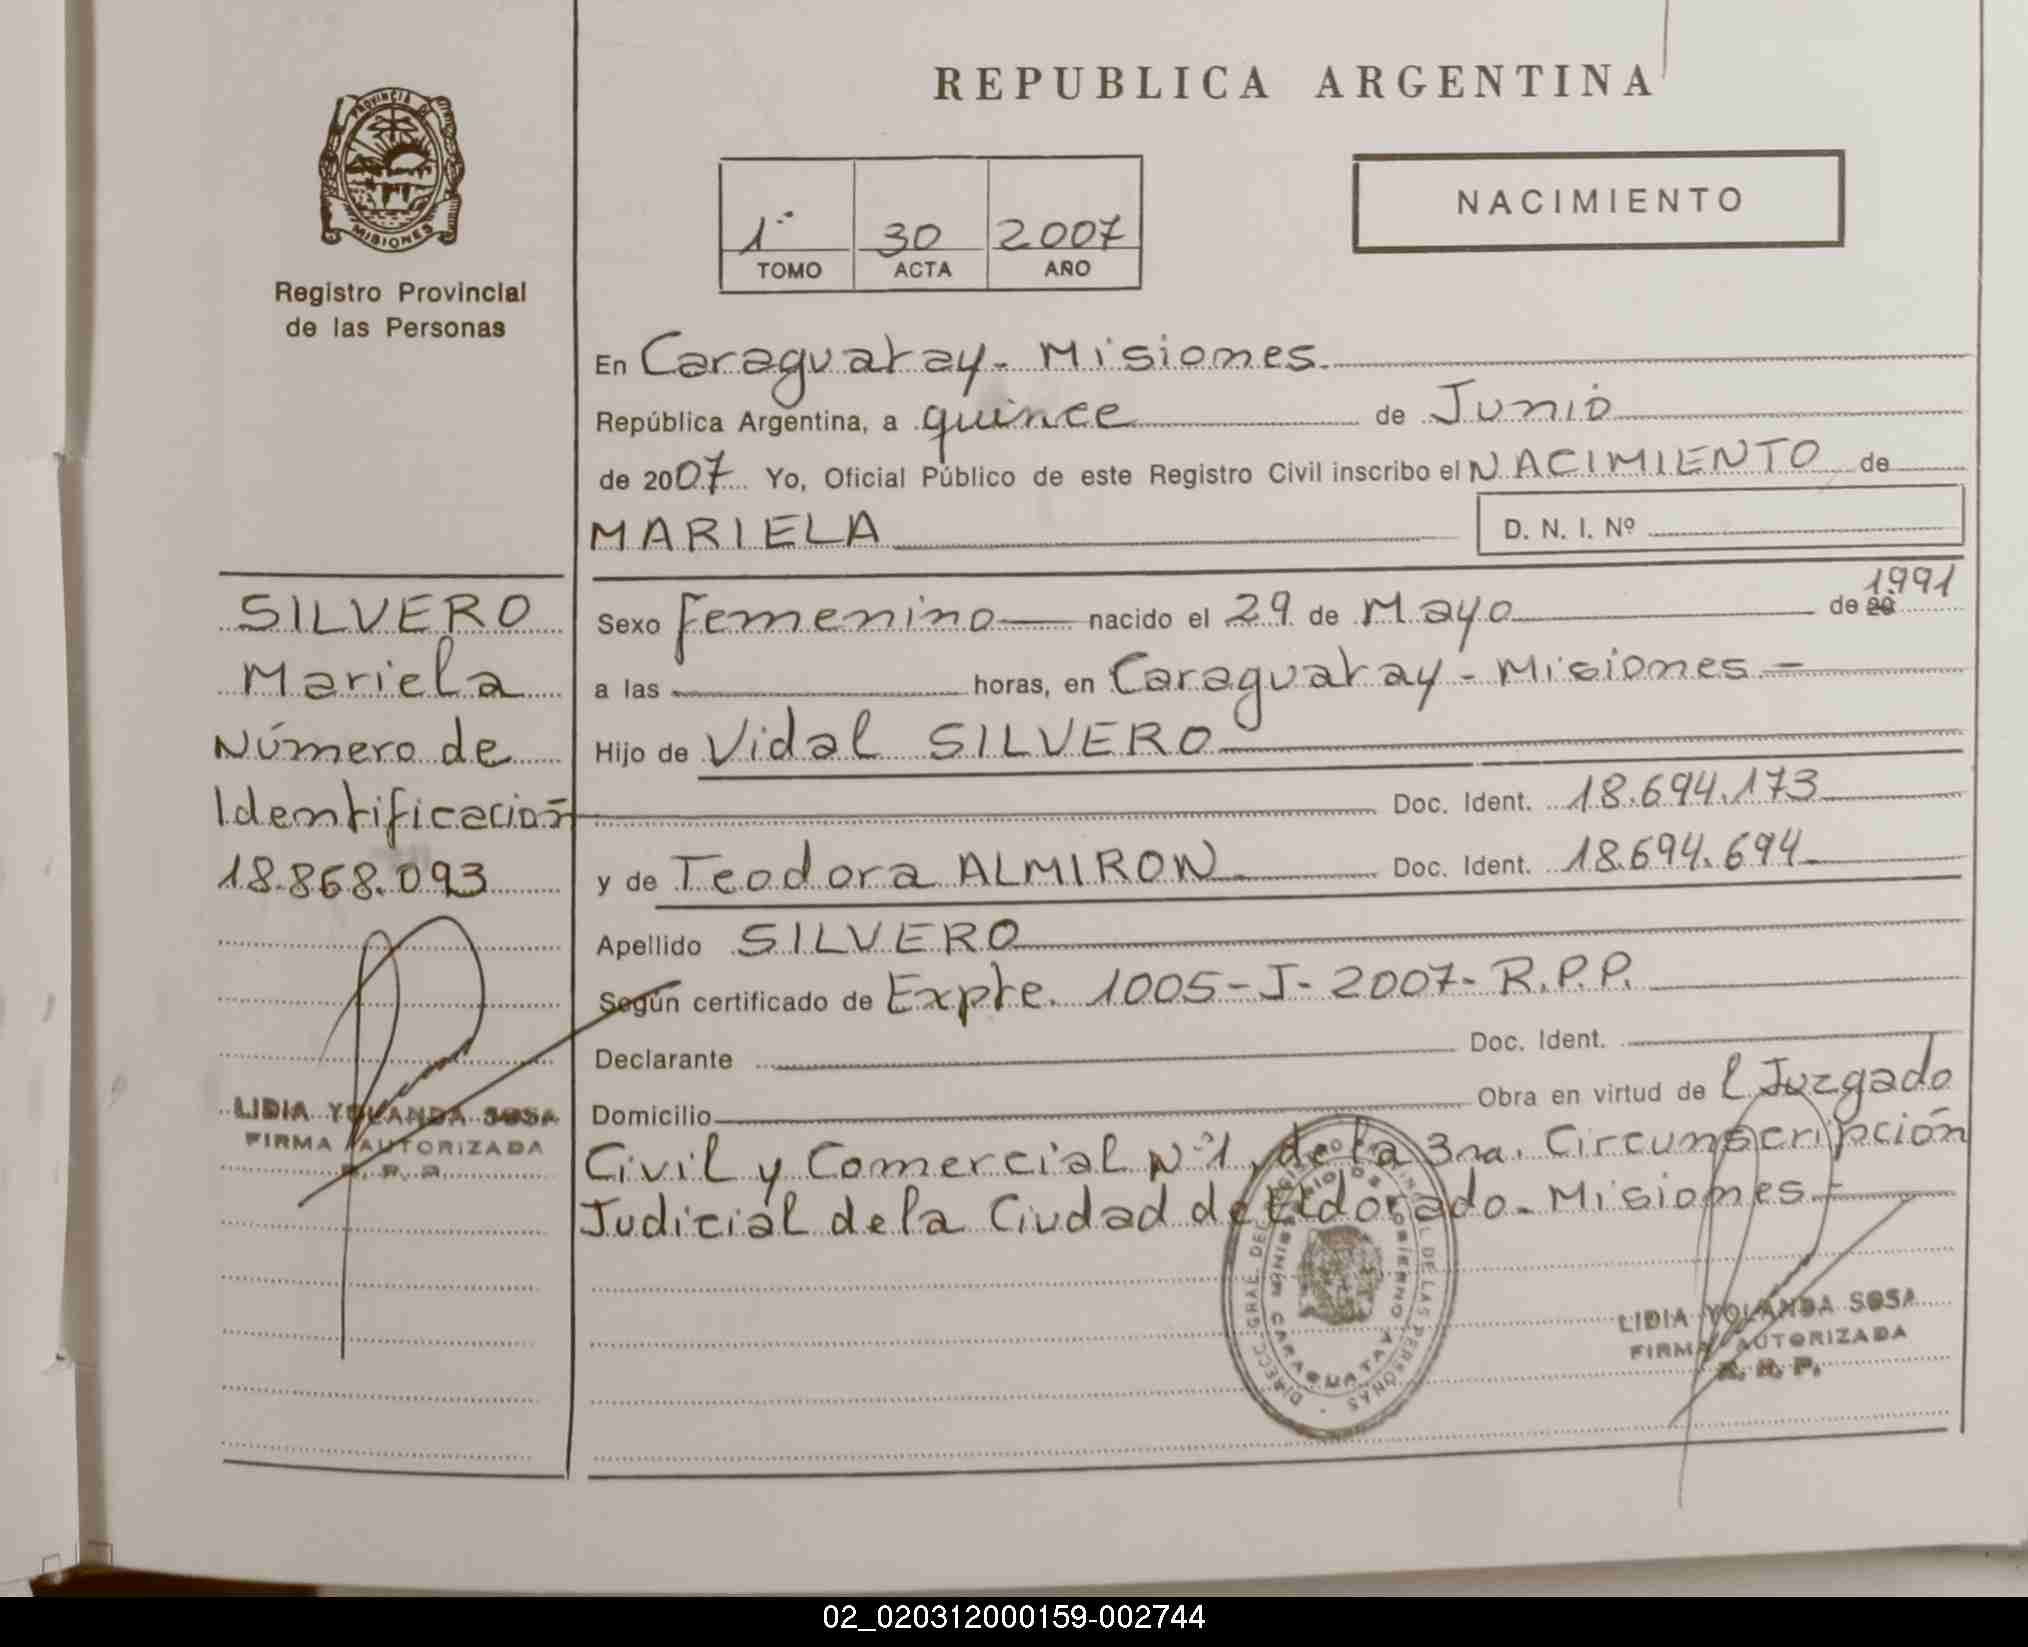 REPUBLICA ARGENTINA
PROVINCIA DE MISIONES
Registro Provincial
de las Personas
NACIMIENTO
1º 30 2007
TOMO ACTA AÑO
En Caraguatay - Misiones.
República Argentina, a quince de Junio
de 2007 Yo, Oficial Público de este Registro Civil inscribo el NACIMIENTO de
MARIELA D. N. I. Nº
SILVERO
Mariela
Número de
Identificación
18.868.093
LIDIA YOLANDA SOSA
FIRMA AUTORIZADA
R. P. P.
Sexo Femenino nacido el 29 de Mayo de 20 1991
a las horas, en Caraguatay - Misiones -
Hijo de Vidal SILVERO
Doc. Ident. 18.694.173
y de Teodora ALMIRON. Doc. Ident. 18.694.694
Apellido SILVERO
Según certificado de Expte. 1005-J-2007-R.P.P.
Declarante Doc. Ident.
Domicilio Obra en virtud de l Juzgado
Civil y Comercial Nº1, de la 3ra. Circunscripción
Judicial de la Ciudad de Eldorado - Misiones -
DIRECC. GRAL. DEL REGISTRO PROVINCIAL DE LAS PERSONAS
MINISTERIO DE GOBIERNO
CARAGUATAY
LIDIA YOLANDA SOSA
FIRMA AUTORIZADA
R. P. P.
02_020312000159-002744